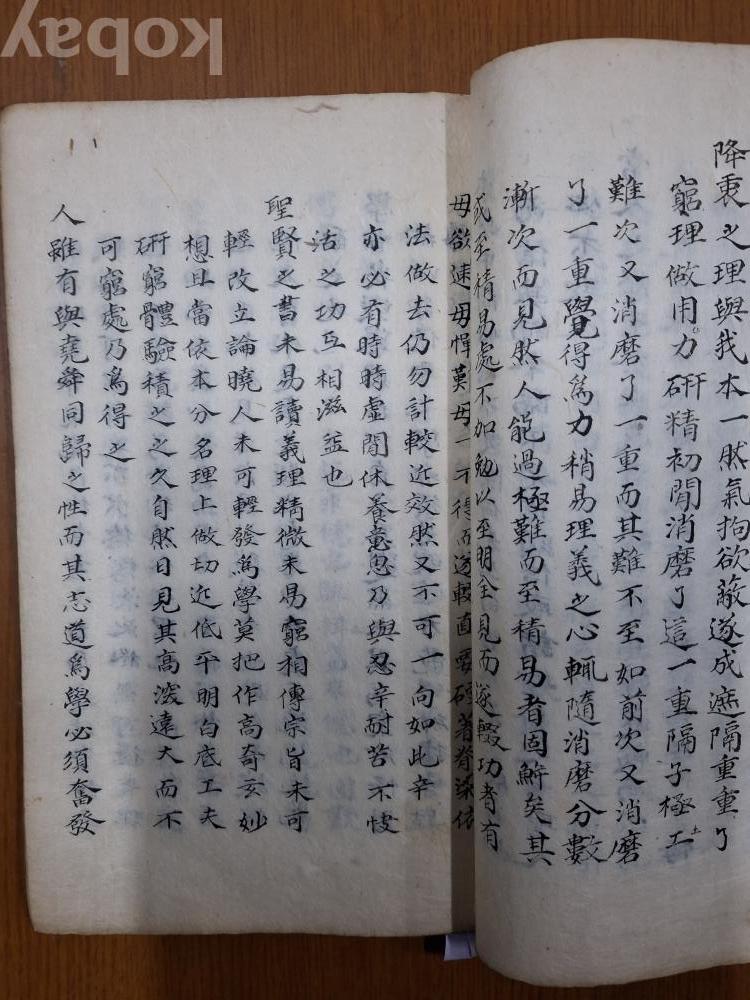 kobay
降衷之理與我本一然氣拘欲蔽遂成遮隔重重了
窮理做用力硏精初間消磨了這一重隔子極工
難次又消磨了一重而其難不至如前次又消磨
了一重覺得爲力稍易理義之心輒隨消磨分數
漸次而見然人能過極難而至精易者固鮮矣其
或至精易處不加勉以至明全見而遂輟功者有
毋欲速毋憚莫毋一不得而遂輟直要硬著脊梁依
法做去仍勿計較近效然又不可一向如此辛
亦必有時時虛閒休養意思乃與忍辛耐苦不快
活之功互相滋益也
聖賢之書未易讀義理精微未易窮相傳宗旨未可
輕改立論曉人未可輕發爲學莫把作高奇玄妙
想且當依本分名理上做切近低平明白底工夫
硏窮體驗積之之久自然日見其高深遠大而不
可窮處乃爲得之
人雖有與堯舜同歸之性而其志道爲學必須奮發